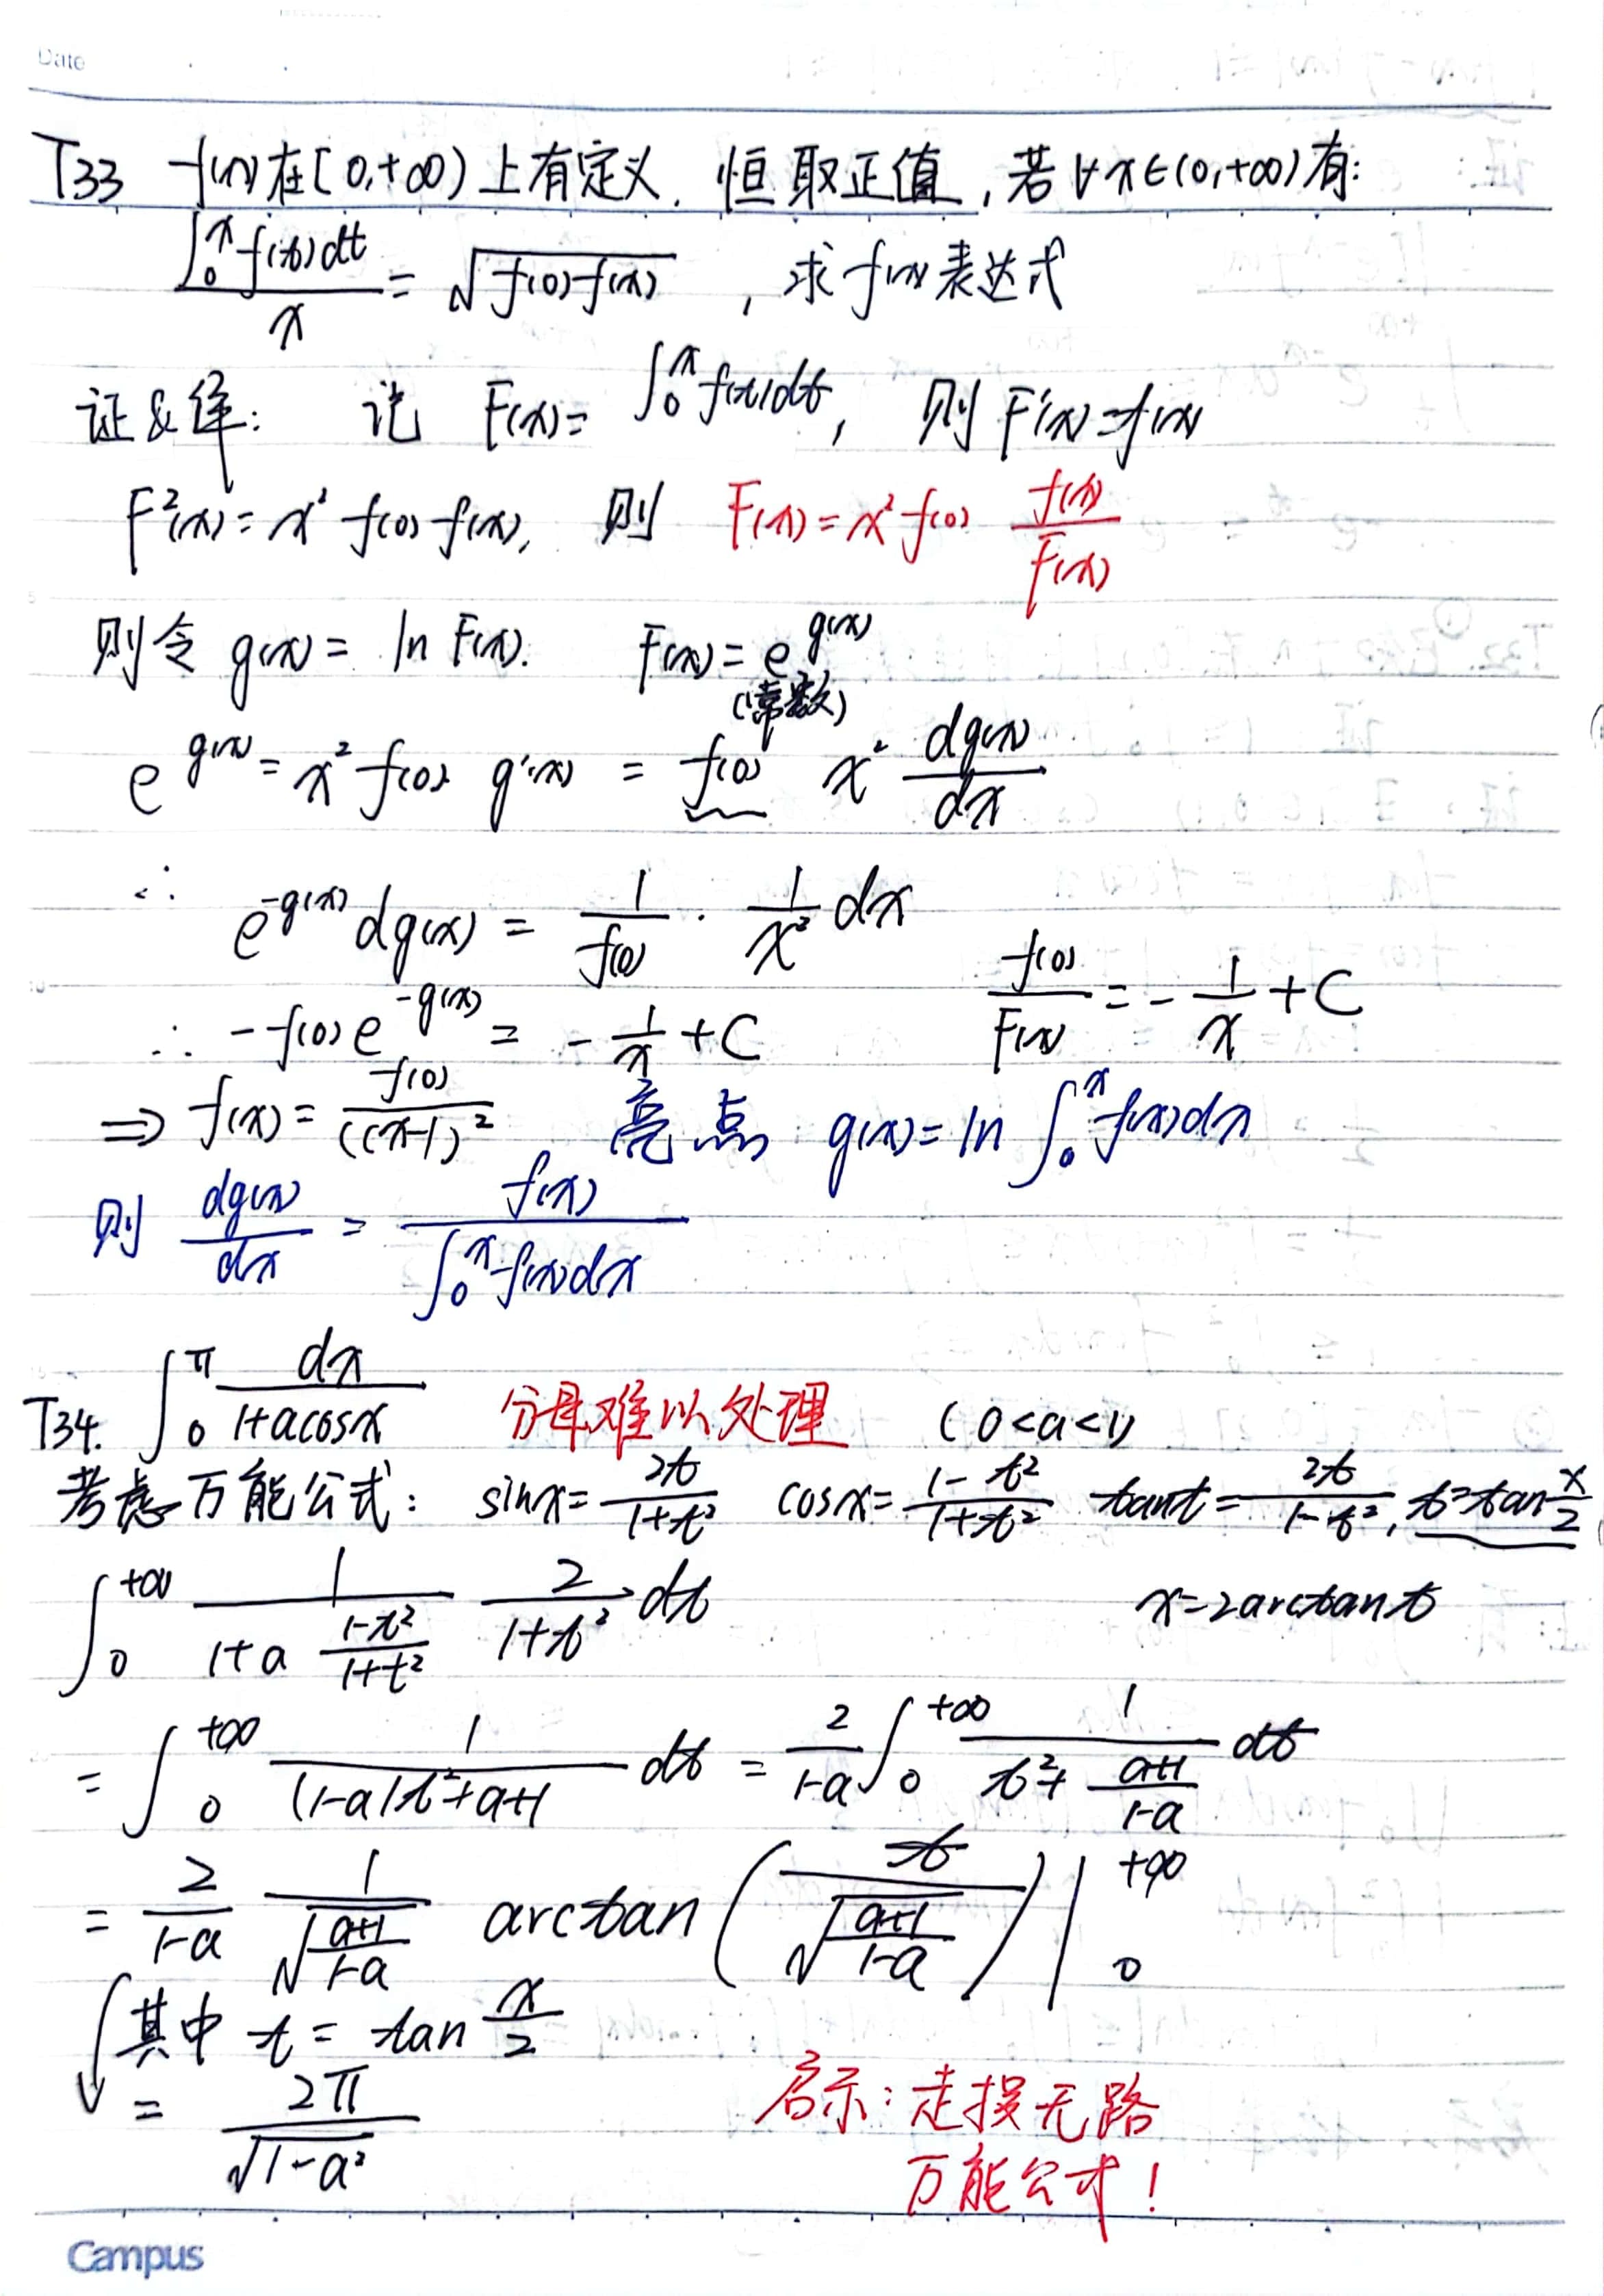 Date
T33 f(x)在[0,+∞)上有定义, 恒取正值, 若∀x∈(0,+∞)有:
∫₀ˣf(t)dt / x = √(f(0)f(x)) , 求f(x)表达式
证&解: 记 F(x)= ∫₀ˣf(t)dt, 则 F'(x)=f(x)
F²(x)=x²f(0)f(x), 则 F(x)=x²f(0) f(x)/F(x)
则令 g(x)= ln F(x). F(x)=e^g(x)
(常数)
e^g(x) = x²f(0) g'(x) = f(0) x² dg(x)/dx
∴ e^-g(x) dg(x) = 1/f(0) · 1/x² dx
∴ -f(0)e^-g(x) = -1/x + C f(0)/F(x) = -1/x + C
⇒ f(x)= f(0)/(Cx-1)² 亮点: g(x)=ln ∫₀ˣf(x)dx
则 dg(x)/dx = f(x) / ∫₀ˣf(x)dx
T34. ∫₀^π dx/(1+acosx) 分母难以处理 (0<a<1)
考虑万能公式: sinx= 2t/(1+t²) cosx= (1-t²)/(1+t²) tant= 2t/(1-t²), t=tan x/2
∫₀^+∞ 1/(1+a (1-t²)/(1+t²)) 2/(1+t²) dt x=2arctant
= ∫₀^+∞ 1/((1-a)t²+a+1) dt = 2/(1-a) ∫₀^+∞ 1/(t²+ (a+1)/(1-a)) dt
= 2/(1-a) 1/√((a+1)/(1-a)) arctan( t/√((a+1)/(1-a)) ) |₀^+∞
其中 t = tan x/2
= 2π/√(1-a²) 启示: 走投无路
万能公式!
Campus